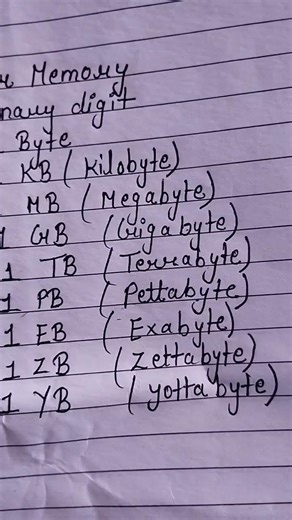 Memory
digit
Byte
KB (Kilobyte)
MB (Megabyte)
1 GB (Gigabyte)
1 TB (Terrabyte)
1 PB (Pettabyte)
1 EB (Exabyte)
1 ZB (Zettabyte)
1 YB (yottabyte)